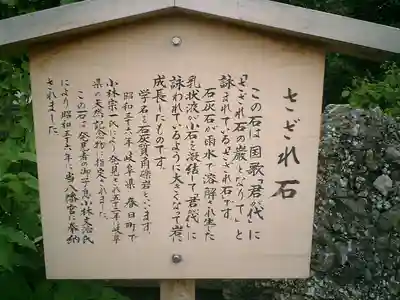 さざれ石
この石は国歌「君が代」に
「さざれ石の巌となりて」と
詠まれているさざれ石です。
石灰石が雨水で溶解され生じた
乳状液が小石を凝結して「君が代」に
詠われているように大きくなって岩に
成長したものです。
学名を石灰質角礫岩といいます。
昭和三十六年、岐阜県春日町で
小林宗一氏により発見され五十二年岐阜
県の天然記念物に指定されました。
この石は発見者の御子息小林文治氏
により昭和五十六年に当八幡宮に奉納
されました。